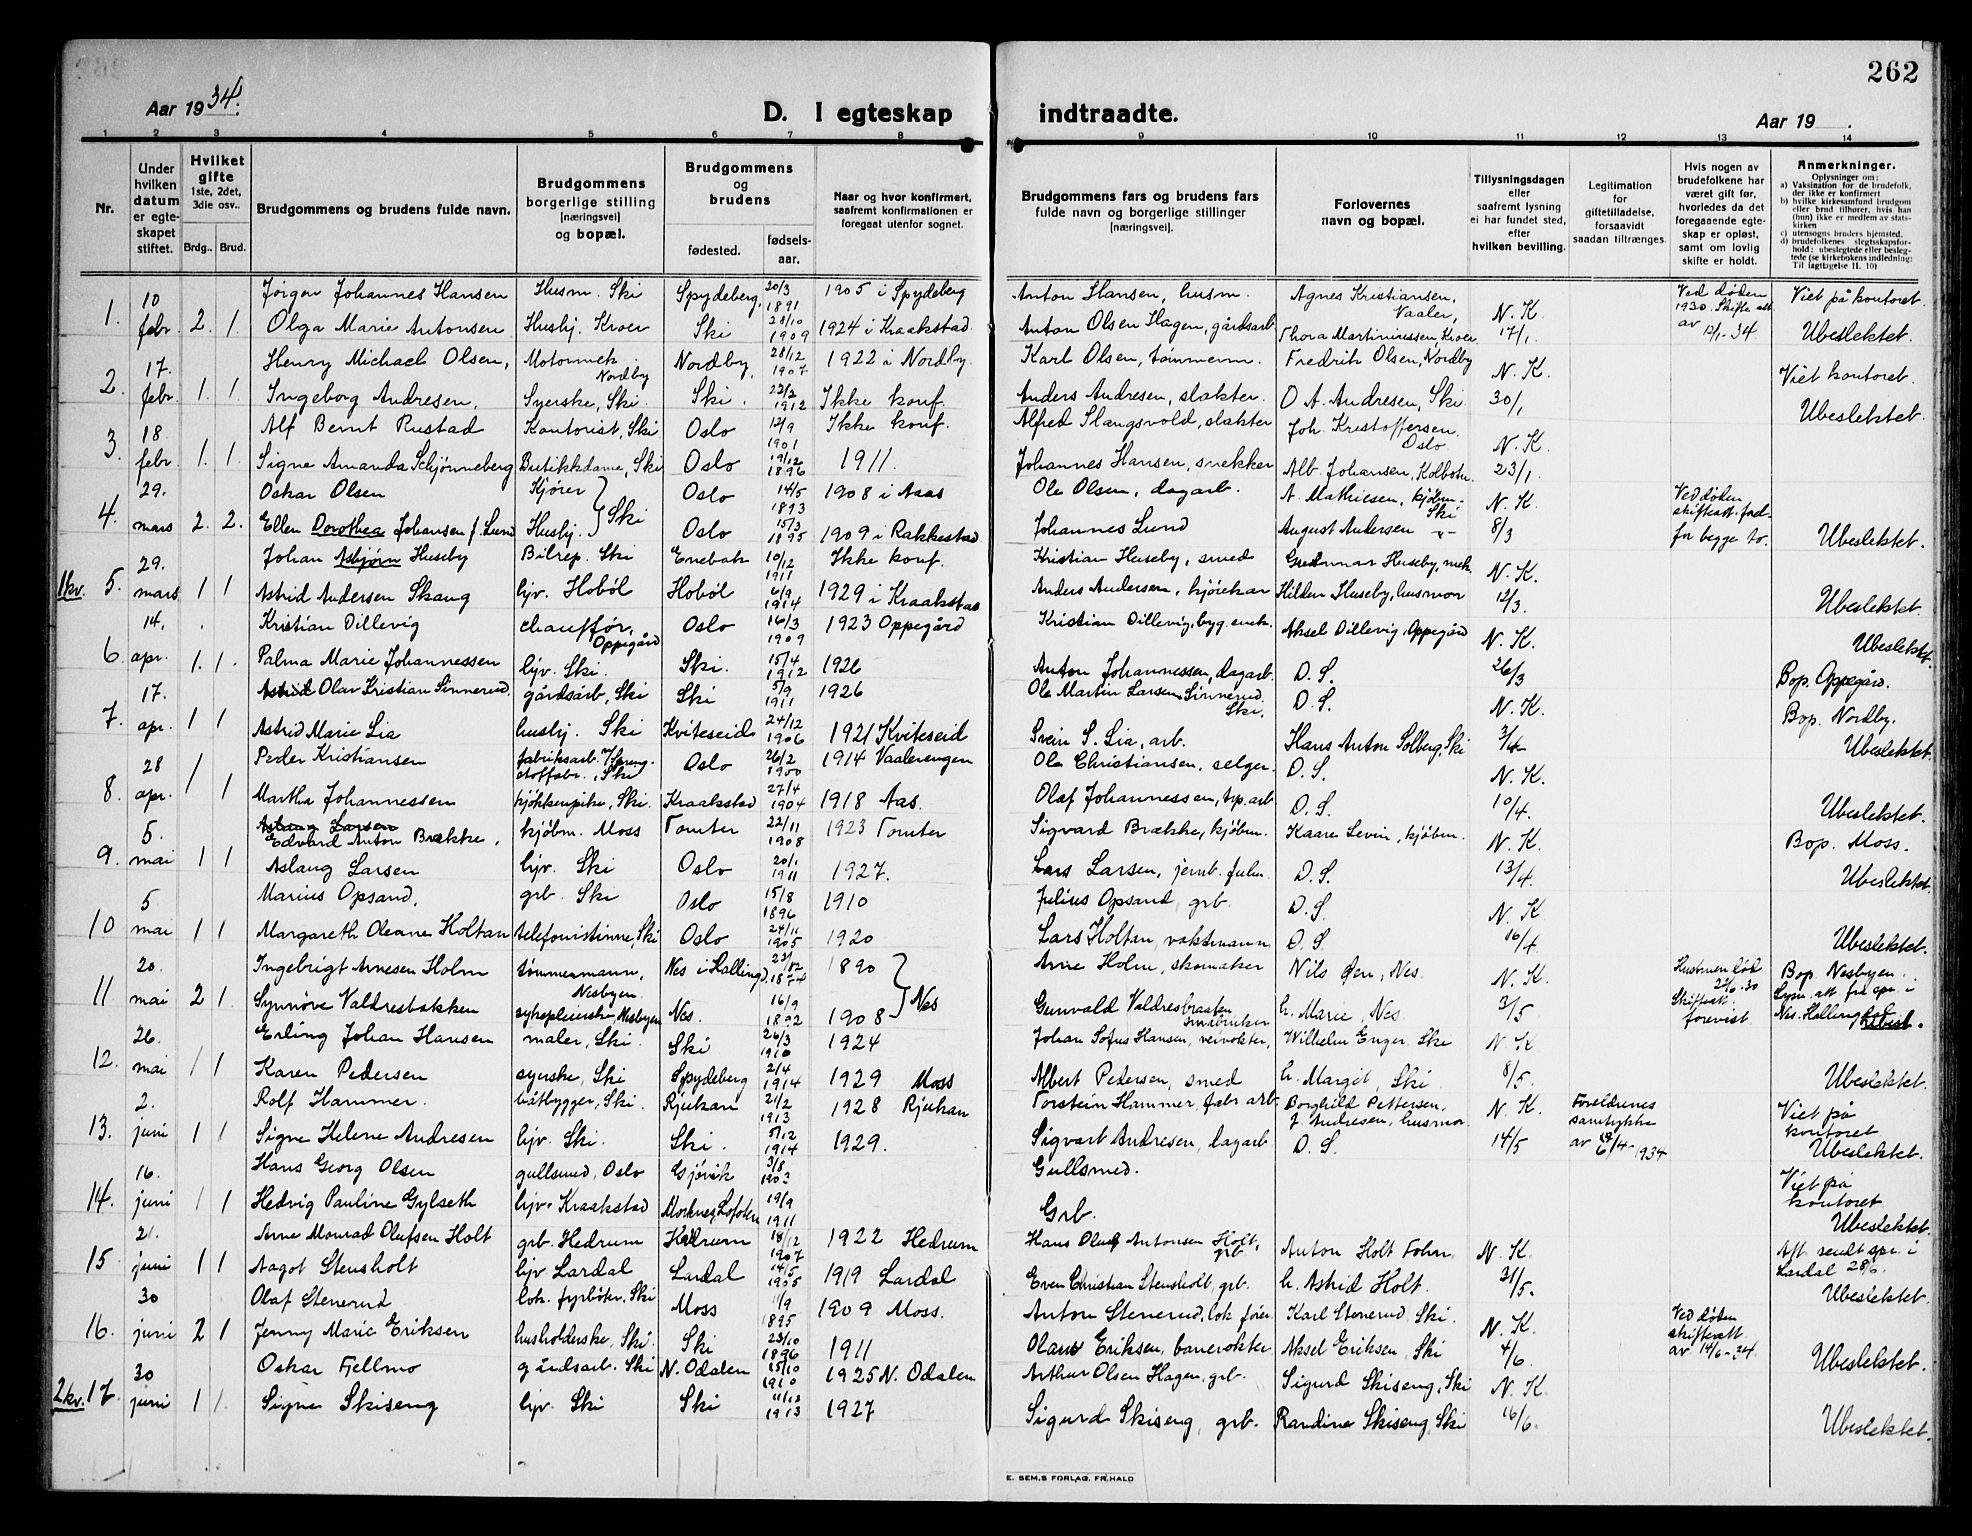 262
Aar 1934.
D. I egteskap indtraadte.
Aar 19 .
1 2 3 4 5 6 7 8 9 10 11 12 13 14
Nr.
Under hvilken datum er egteskapet stiftet.
Hvilket gifte 1ste, 2det, 3die osv..
Brdg.. Brud.
Brudgommens og brudens fulde navn.
Brudgommens borgerlige stilling [næringsvei] og bopæl.
Brudgommens og brudens
fødested.
fødsels-aar.
Naar og hvor konfirmert, saafremt konfirmationen er foregaat utenfor sognet.
Brudgommens fars og brudens fars fulde navn og borgerlige stillinger [næringsvei].
Forlovernes navn og bopæl.
Tillysningsdagen eller saafremt lysning ei har fundet sted, efter hvilken bevilling.
Legitimation for giftetilladelse, forsaavidt saadan tiltrænges.
Hvis nogen av brudefolkene har været gift før, hvorledes da det foregaaende egteskap er opløst, samt om lovlig skifte er holdt.
Anmerkninger.
Oplysninger om:
a) Vaksination for de brudefolk, der ikke er konfirmert
b) hvilke kirkesamfund brudgom eller brud tilhører, hvis han (hun) ikke er medlem av statskirken
c) utensogns bruders hjemsted.
d) brudefolkenes slegtsskapsforhold: ubeslegtede eller beslegtede (se kirkebokens indledning: Til iagttagelse II. 10)
1. 10 febr 2. 1. Jørgen Johannes Hansen Husm. Ski Spydeberg, 20/3 1891 1905 i Spydeberg Anton Hansen, husm. Agnes Kristiansen, Vaaler, N. K. 17/1 Ved døden 1930. Skifte att. av 12/1-34 Viet på kontoret.
Olga Marie Antonsen Husbj. Kroer Ski 28/10 1909 1924 i Kraakstad Anton Olsen Hagen, gårdsarb Thora Martiniussen, Kroer Ubeslektet.
2. 17. febr. 1. 1. Henry Michael Olsen, Motormek. Nordby Nordby, 28/12 1907 1922 i Nordby. Karl Olsen, tømmerm. Fredrik Olsen, Nordby N. K. 30/1 Viet kontoret.
Ingeborg Andresen, Syerske, Ski. Ski. 22/2 1912 Ikke konf. Anders Andresen, slakter. O A. Andresen, Ski Ubeslektet.
3. 18 febr 1. 1. Alf Bernt Rustad Kontorist, Ski Oslo 12/9 1901 Ikke konf. Alfred Slangsvold, slakter Joh. Kristoffersen Oslo N. K. 23/1
Signe Amanda Schjønneberg Butikkdame, Ski Oslo 19/12 1896 1911. Johannes Hansen, snekker Alb. Johansen, Kolbotn
4. 29. mars 2. 2. Oskar Olsen Kjører Ski Oslo 14/5 1893 1908 i Aas Ole Olsen, dagarb. A. Mathiesen, kjøbm. Ski N. K. 8/3 Ved døden skifteatt. fored. for begge to.
Ellen Dorothea Johansen f. Lund Husbj. Oslo 15/3 1895 1909 i Rakkestad Johannes Lund August Andersen -"- Ubeslektet.
1 kv. 5. 29. mars 1 1 Johan Asbjørn Huseby Bilrep. Ski Enebak 10/12 1911 Ikke konf. Kristian Huseby, smed Gudmnar Huseby, mek. N. K. 12/3.
Astrid Andersen Skaug hjv. Hobøl Hobøl 6/9 1914 1929 i Kraakstad Anders Andersen, kjørekar Hilden Huseby, husmor Ubeslektet.
6 14. apr. 1. 1. Kristian Dillevig chauffør, Oppegård Oslo 16/3 1909 1923 Oppegård Kristian Dillevig, byg.snek. Aksel Dillevig, Oppegård N. K. 26/3 Ubeslektet.
Palma Marie Johannessen hjv. Ski Ski. 15/4 1912 1926 Anton Johannessen, dagarb. D. S. Bop. Oppegård.
7 17. apr. 1 1 Olav Kristian Sinnerud. gårdsarb, Ski Ski 5/9 1911 1926 Ole Martin Larsen Sinnerud Ski. D. S. N. K. 3/4 Bop. Nordby.
Astrid Marie Lia husbj. Ski Kviteseid 24/12 1906 1921 Kviteseid Svein S. Lia, arb. Hans Anton Solberg, Ski Ubeslektet.
8 28 apr. 1 1 Peder Kristiansen fabriksarb. v/ Sprengstoffabr., Ski Oslo 26/2 1900 1914 Vaalerengen Ole Christiansen, selger D. S. N. K. 10/4.
Martha Johannessen kjøkkenpike, Ski. Kraakstad 27/4 1904 1918 Aas. Olaf Johannessen, typ. arb D. S. Ubeslektet.
9. 5. mai 1 1 Aslaug Larsen
Edvard Anton Brække, kjøbm. Moss Tomter 22/11 1908 1923 Tomter Sigvard Brække, kjøbm. Kaare Levin, kjøbm. N. K. 13/4. Bop. Moss.
Aslaug Larsen hjv. Ski Oslo 20/1 1911 1927. Lars Larsen, jernb. fulm. D. S. Ubeslektet.
10 5 mai 1 1 Marius Opsand, grb. Ski Oslo 15/8 1896 1910 Julius Opsand, grb. D. S. N. K. 16/4
Margareth Oleane Holtan telefonistinne, Ski Oslo 24/11 1905 1920 Lars Holtan, vaktmann D. S. Ubeslektet.
11 20. mai 2 1. Ingebrigt Arnesen Holm tømmermann, Nesbyen Nes i Halling. 1874 1890 Nes Arne Holm, skomaker Nils Øen, Nes. N. K. 3/5 Hustruen død 22/6-30 Skifteatt. forevist Bop. Nesbyen.
Synnøve Valdresbakken sykepleierske Nesbyen Nes. 16/9 1892 1908 Gunvald Valdresbraaten småbruker h. Marie, Nes Lysn. att. fra spr. i Nes. Hallingdal Ubesl.
12. 26. mai 1 1 Erling Johan Hansen maler, Ski. Ski 26/3 1910 1924 Johan Sofus Hansen, veivokter, Wilhelm Enger, Ski N K 8/5.
Karen Pedersen syerske, Ski Spydeberg 2/4 1914 1929 Moss Albert Pedersen, smed h. Margit, Ski. Ubeslektet.
13. 2. juni 1 1 Rolf Hammer. båtbygger, Ski. Rjukan 21/2 1913 1928 Rjukan Torstein Hammer, fabr arb. Borghild Pettersen, N. K. 14/5 Foreldrenes samtykke av 6/4-1934 Viet på kontoret
Signe Helene Andresen hjv. Ski. Ski. 5/12 1914 1929. Sigvart Andresen, dagarb J. Andresen, husmor D. S. Ubeslektet.
14. 16. juni 1 1 Hans Georg Olsen gullsmed, Oslo Gjøvik 3/8 1903 Gullsmed. Viet på kontoret
Hedvig Pauline Gylseth hjv. Kraakstad Lofoten 19/9 1911 Grb. Ubeslektet.
15 21. juni 1 1 Arne Monrad Olufsen Holt grb. Hedrum Hedrum 18/12 1907 1922 Hedrum Hans Oluf Antonsen Holt, grb Anton Holt Fohn, N. K. 31/5. Att. sendt spr. i Lardal 28/6.
Aagot Stensholt hjv Lardal Lardal 14/5 1905 1919 Lardal Even Christian Stensholt, grb. h. Astrid Holt. Ubeslektet.
16. 30 juni 2 1 Olaf Stenerud lok. fyrbøter, Ski Moss 11/9 1895 1909 Moss. Anton Stenerud, lok. fører Karl Stenerud, Ski. N. K. 4/6 Ved døden skifteatt av 14/6-34.
Jenny Marie Eriksen husholderske, Ski. Ski 23/10 1896 1911 Olaus Eriksen, banevokter Aksel Eriksen, Ski Ubeslektet.
2 kv. 17. 30 juni 1 1. Oskar Fjellmo gårdsarb. Ski N. Odalen 15/10 1910 1925 N. Odalen Arthur Olsen Hagen, grb. Sigurd Skiseng, Ski N. K. 16/6.
Signe Skiseng hjv. Ski Ski 11/12 1913 1927 Sigurd Skiseng, grb. Randine Skiseng, Ski Ubeslektet.
E. SEM.S FORLAG. FR.HALD